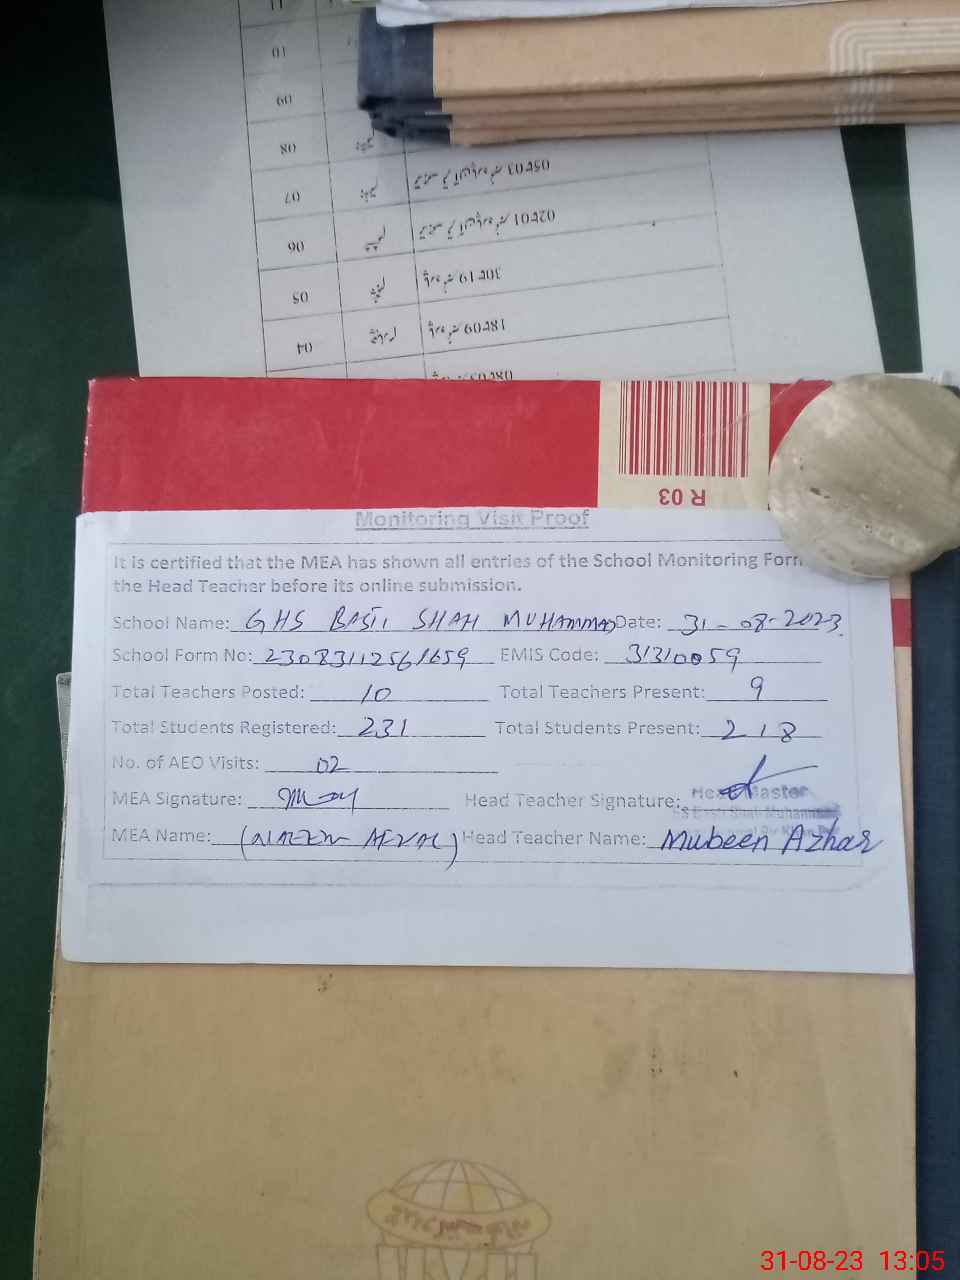 11
10
09
08
07
06
05
04
R 03
Monitoring Visit Proof
It is certified that the MEA has shown all entries of the School Monitoring Form
the Head Teacher before its online submission.
School Name: GHS BASTI SHAH MUHAMMAD Date: 31-08-2023
School Form No: 23083112561659 EMIS Code: 31310059
Total Teachers Posted: 10 Total Teachers Present: 9
Total Students Registered: 231 Total Students Present: 218
No. of AEO Visits: 02
MEA Signature: Head Teacher Signature: Head Master
Basti Shah Muhammad
MEA Name: Head Teacher Name: Mubeen Azhar
31-08-23 13:05